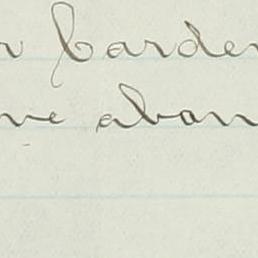 r Carden
ve aban